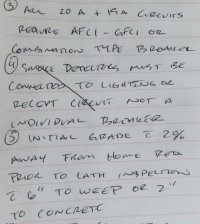 ③ ALL 20 A + 15A CIRCUITS
REQUIRE AFCI - GFCI OR
COMBINATION TYPE BREAKER
④ SMOKE DETECTORS MUST BE
CONNECTED TO LIGHTING OR
RECEPT CIRCUIT NOT A
INDIVIDUAL BREAKER
⑤ INITIAL GRADE 2%
AWAY FROM HOME REQ
PRIOR TO LATH INSPECTION
6" TO WEEP OR 2"
TO CONCRETE